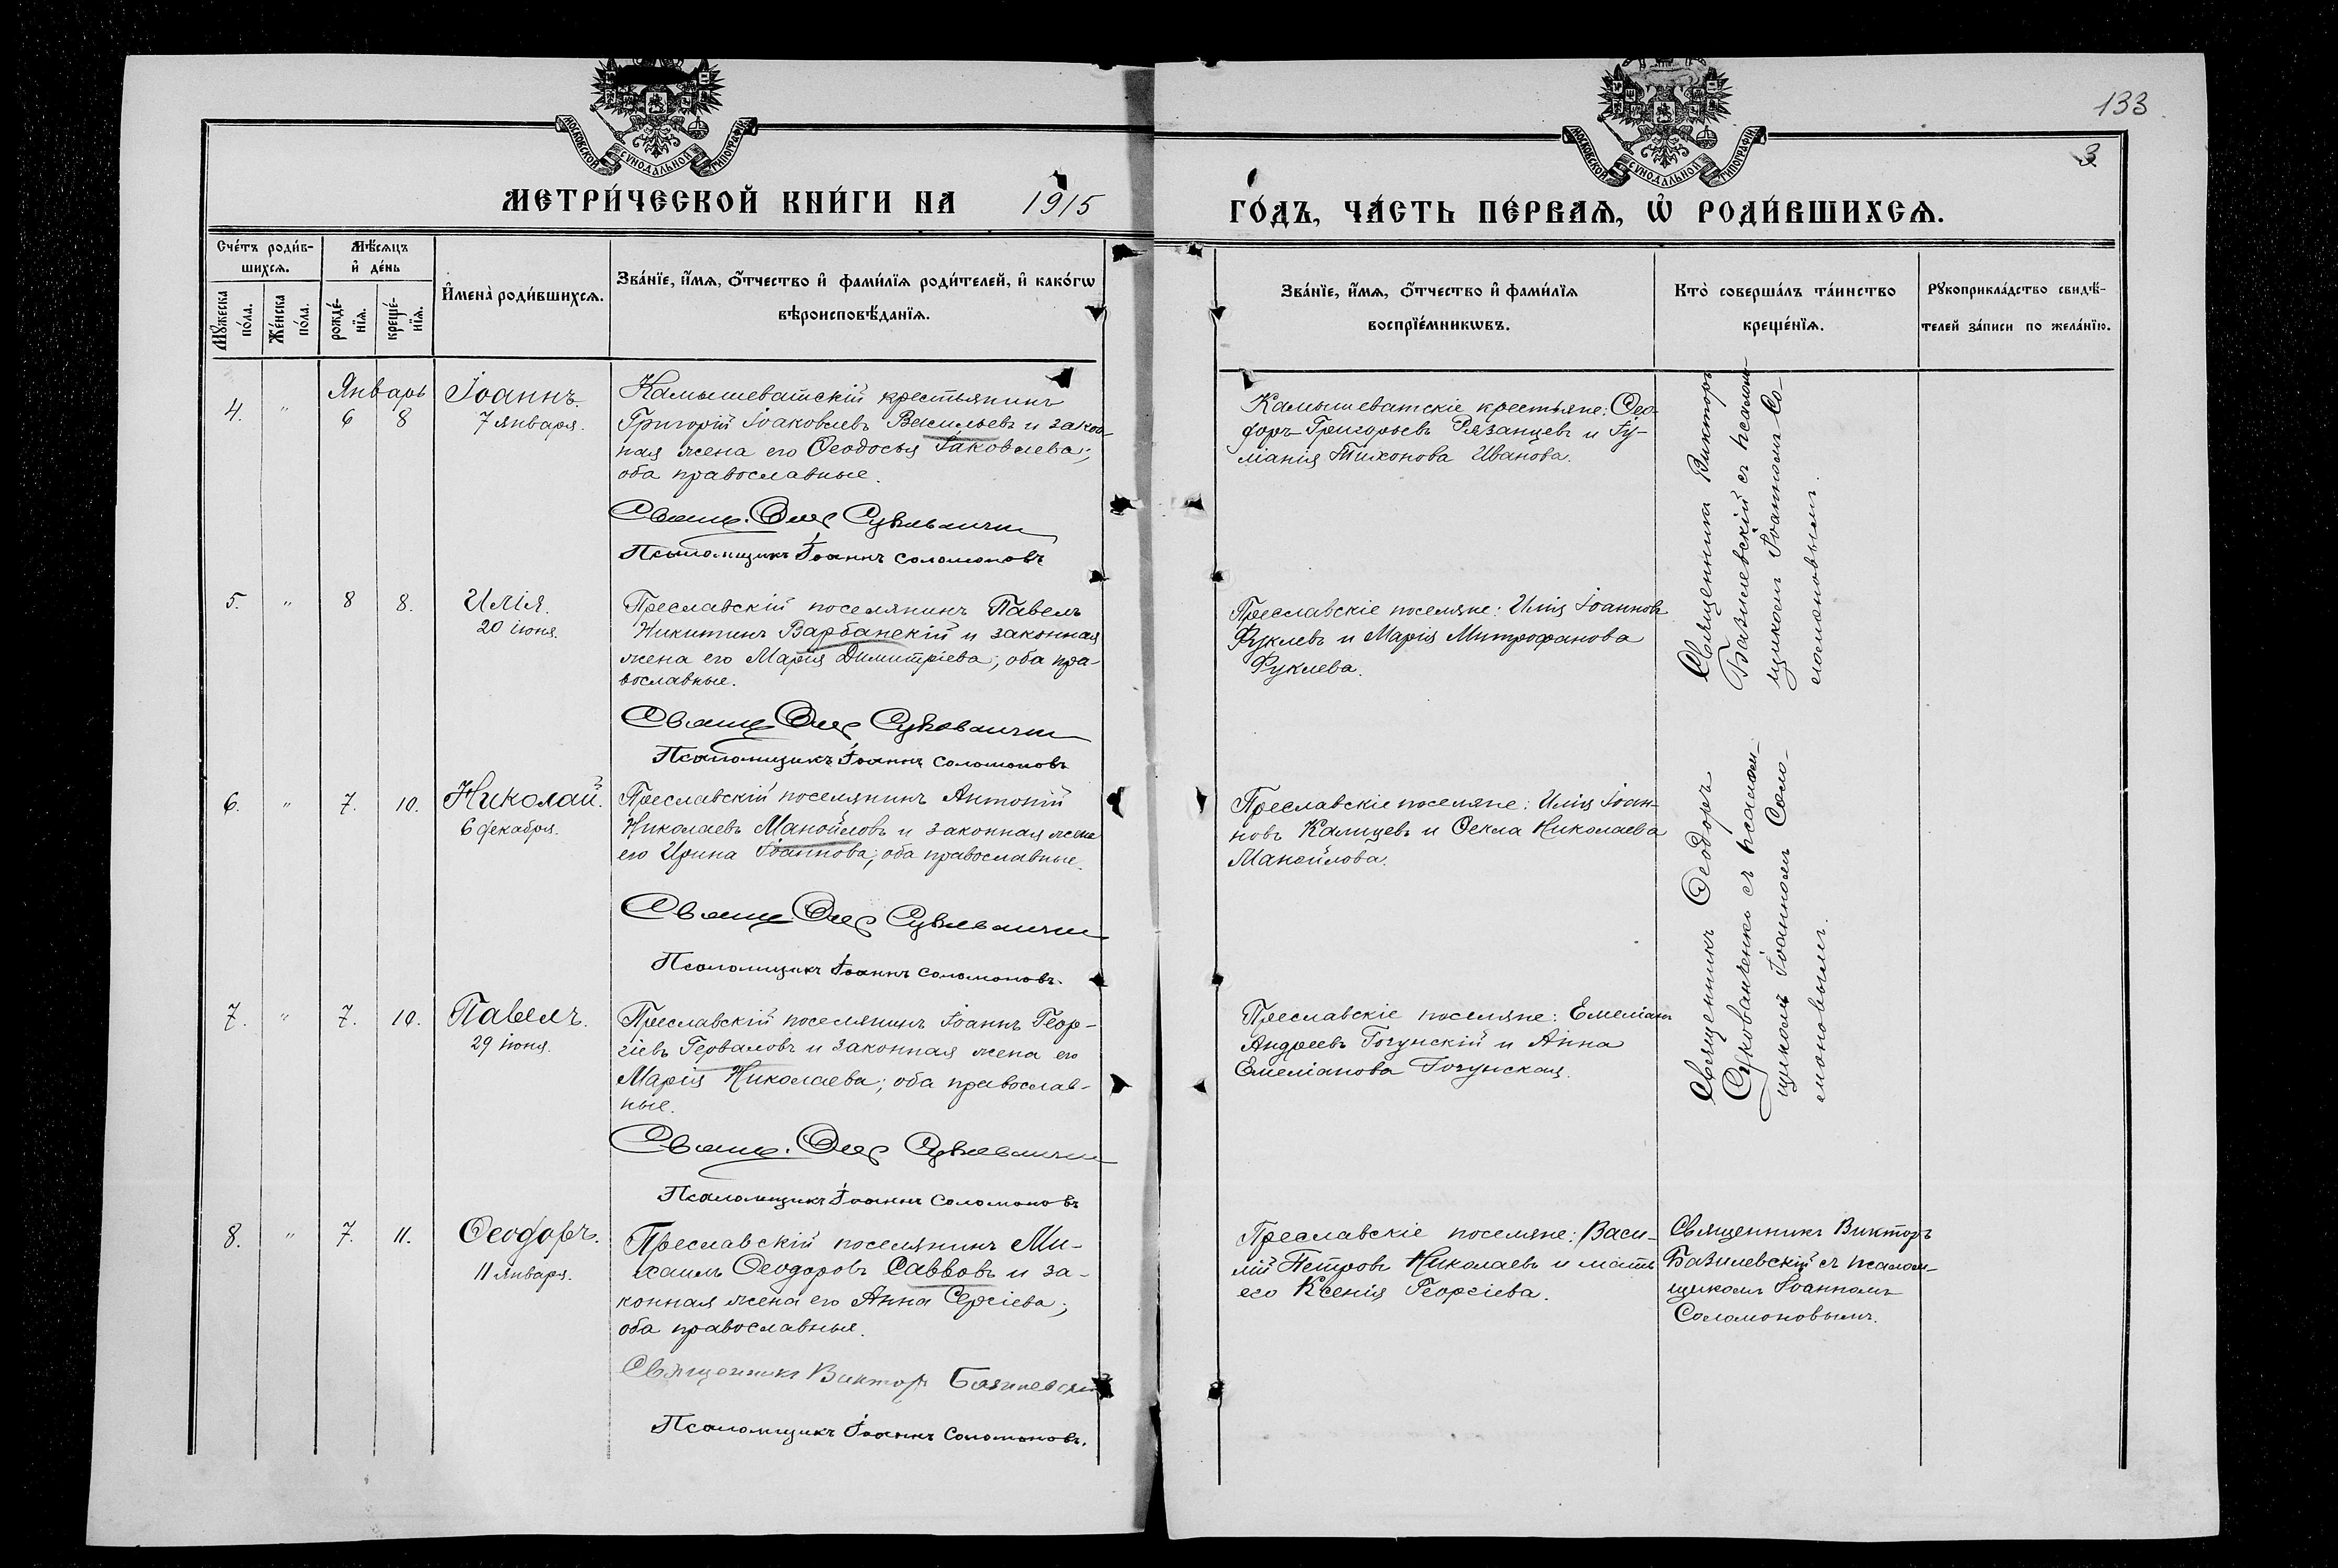 133
3
МОСКОВСКОЙ СУНОДАЛЬНОЙ ТИПОГРАФІИ
МОСКОВСКОЙ СУНОДАЛЬНОЙ ТИПОГРАФІИ
МЕТРИ́ЧЕСКОЙ КНИ́ГИ НА 1915 ГО́ДЪ, ЧА́СТЬ ПЕ́РВАѦ, Ѡ҆ РОДИ́ВШИХСѦ.
Сче́тъ роди́в-
шихсѧ.
Мꙋжеска по́ла.
Же́нска по́ла.
Мѣ́сѧцъ
и҆ де́нь
рожде́-
нїѧ.
креще́-
нїѧ.
И҆мена̀ роди́вшихсѧ.
Зва́нїе, и҆́мѧ, ѻ҆́тчество и҆ фами́лїѧ роди́телей, и҆ како́гѡ
вѣроисповѣ́данїѧ.
Зва́нїе, и҆́мѧ, ѻ҆́тчество и҆ фами́лїѧ
воспрїе́мникѡвъ.
Кто̀ соверша́лъ та́инство
креще́нїѧ.
Рꙋкоприкла́дство свидѣ́-
телей за́писи по жела́нїю.
4. " Январь 6 8 Іоаннъ.
7 января.
Камышеватскій крестьянинъ
Григорій Іоаковлевъ Васильевъ и закон-
ная жена его Ѳеодосья Іаковлева;
оба православные.
Свящ.
Псаломщикъ Іоаннъ Соломоновъ
Камышеватскіе крестьяне: Ѳео-
форъ Григорьевъ Рязанцевъ и Іу-
ліанія Тихонова Иванова.
Священника Викторъ
Базилевскій съ псалом-
щикомъ Іоанномъ Со-
ломоновымъ.
5. " 8 8. Илія.
20 іюня.
Преславскій поселянинъ Павелъ
Никитинъ Варбанскій и законная
жена его Марія Димитріева; оба пра-
вославные.
Свящ.
Псаломщикъ Іоаннъ Соломоновъ
Преславскіе поселяне: Илія Іоанновъ
Фуклевъ и Марія Митрофанова
Фуклева.
6. " 7. 10. Николай.
6 декабря.
Преславскій поселянинъ Антоній
Николаевъ Манойловъ и законная жена
его Ирина Іоаннова; оба православные.
Свящ.
Псаломщикъ Іоаннъ Соломоновъ.
Преславскіе поселяне: Илія Іоан-
новъ Калицевъ и Ѳекла Николаева
Манойлова.
Священникъ Ѳеодоръ
съ псалом-
щикомъ Іоанномъ Соло-
моновымъ.
7. " 7. 10. Павелъ.
29 іюня.
Преславскій поселянинъ Іоаннъ Геор-
гіевъ Герваловъ и законная жена его
Марія Николаева; оба православ-
ные.
Свящ.
Псаломщикъ Іоаннъ Соломоновъ
Преславскіе поселяне: Емеліанъ
Андреевъ Гогунскій и Анна
Емеліанова Гогунская.
8. " 7. 11. Ѳеодоръ.
11 января.
Преславскій поселянинъ Ми-
хаилъ Ѳеодоровъ Саввовъ и за-
конная жена его Анна Сергіева;
оба православныя.
Священникъ Викторъ Базилевскій
Псаломщикъ Іоаннъ Соломоновъ.
Преславскіе поселяне: Васи-
лій Петровъ Николаевъ и мать
его Ксенія Георгіева.
Священникъ Викторъ
Базилевскій съ псалом-
щикомъ Іоанномъ
Соломоновымъ.